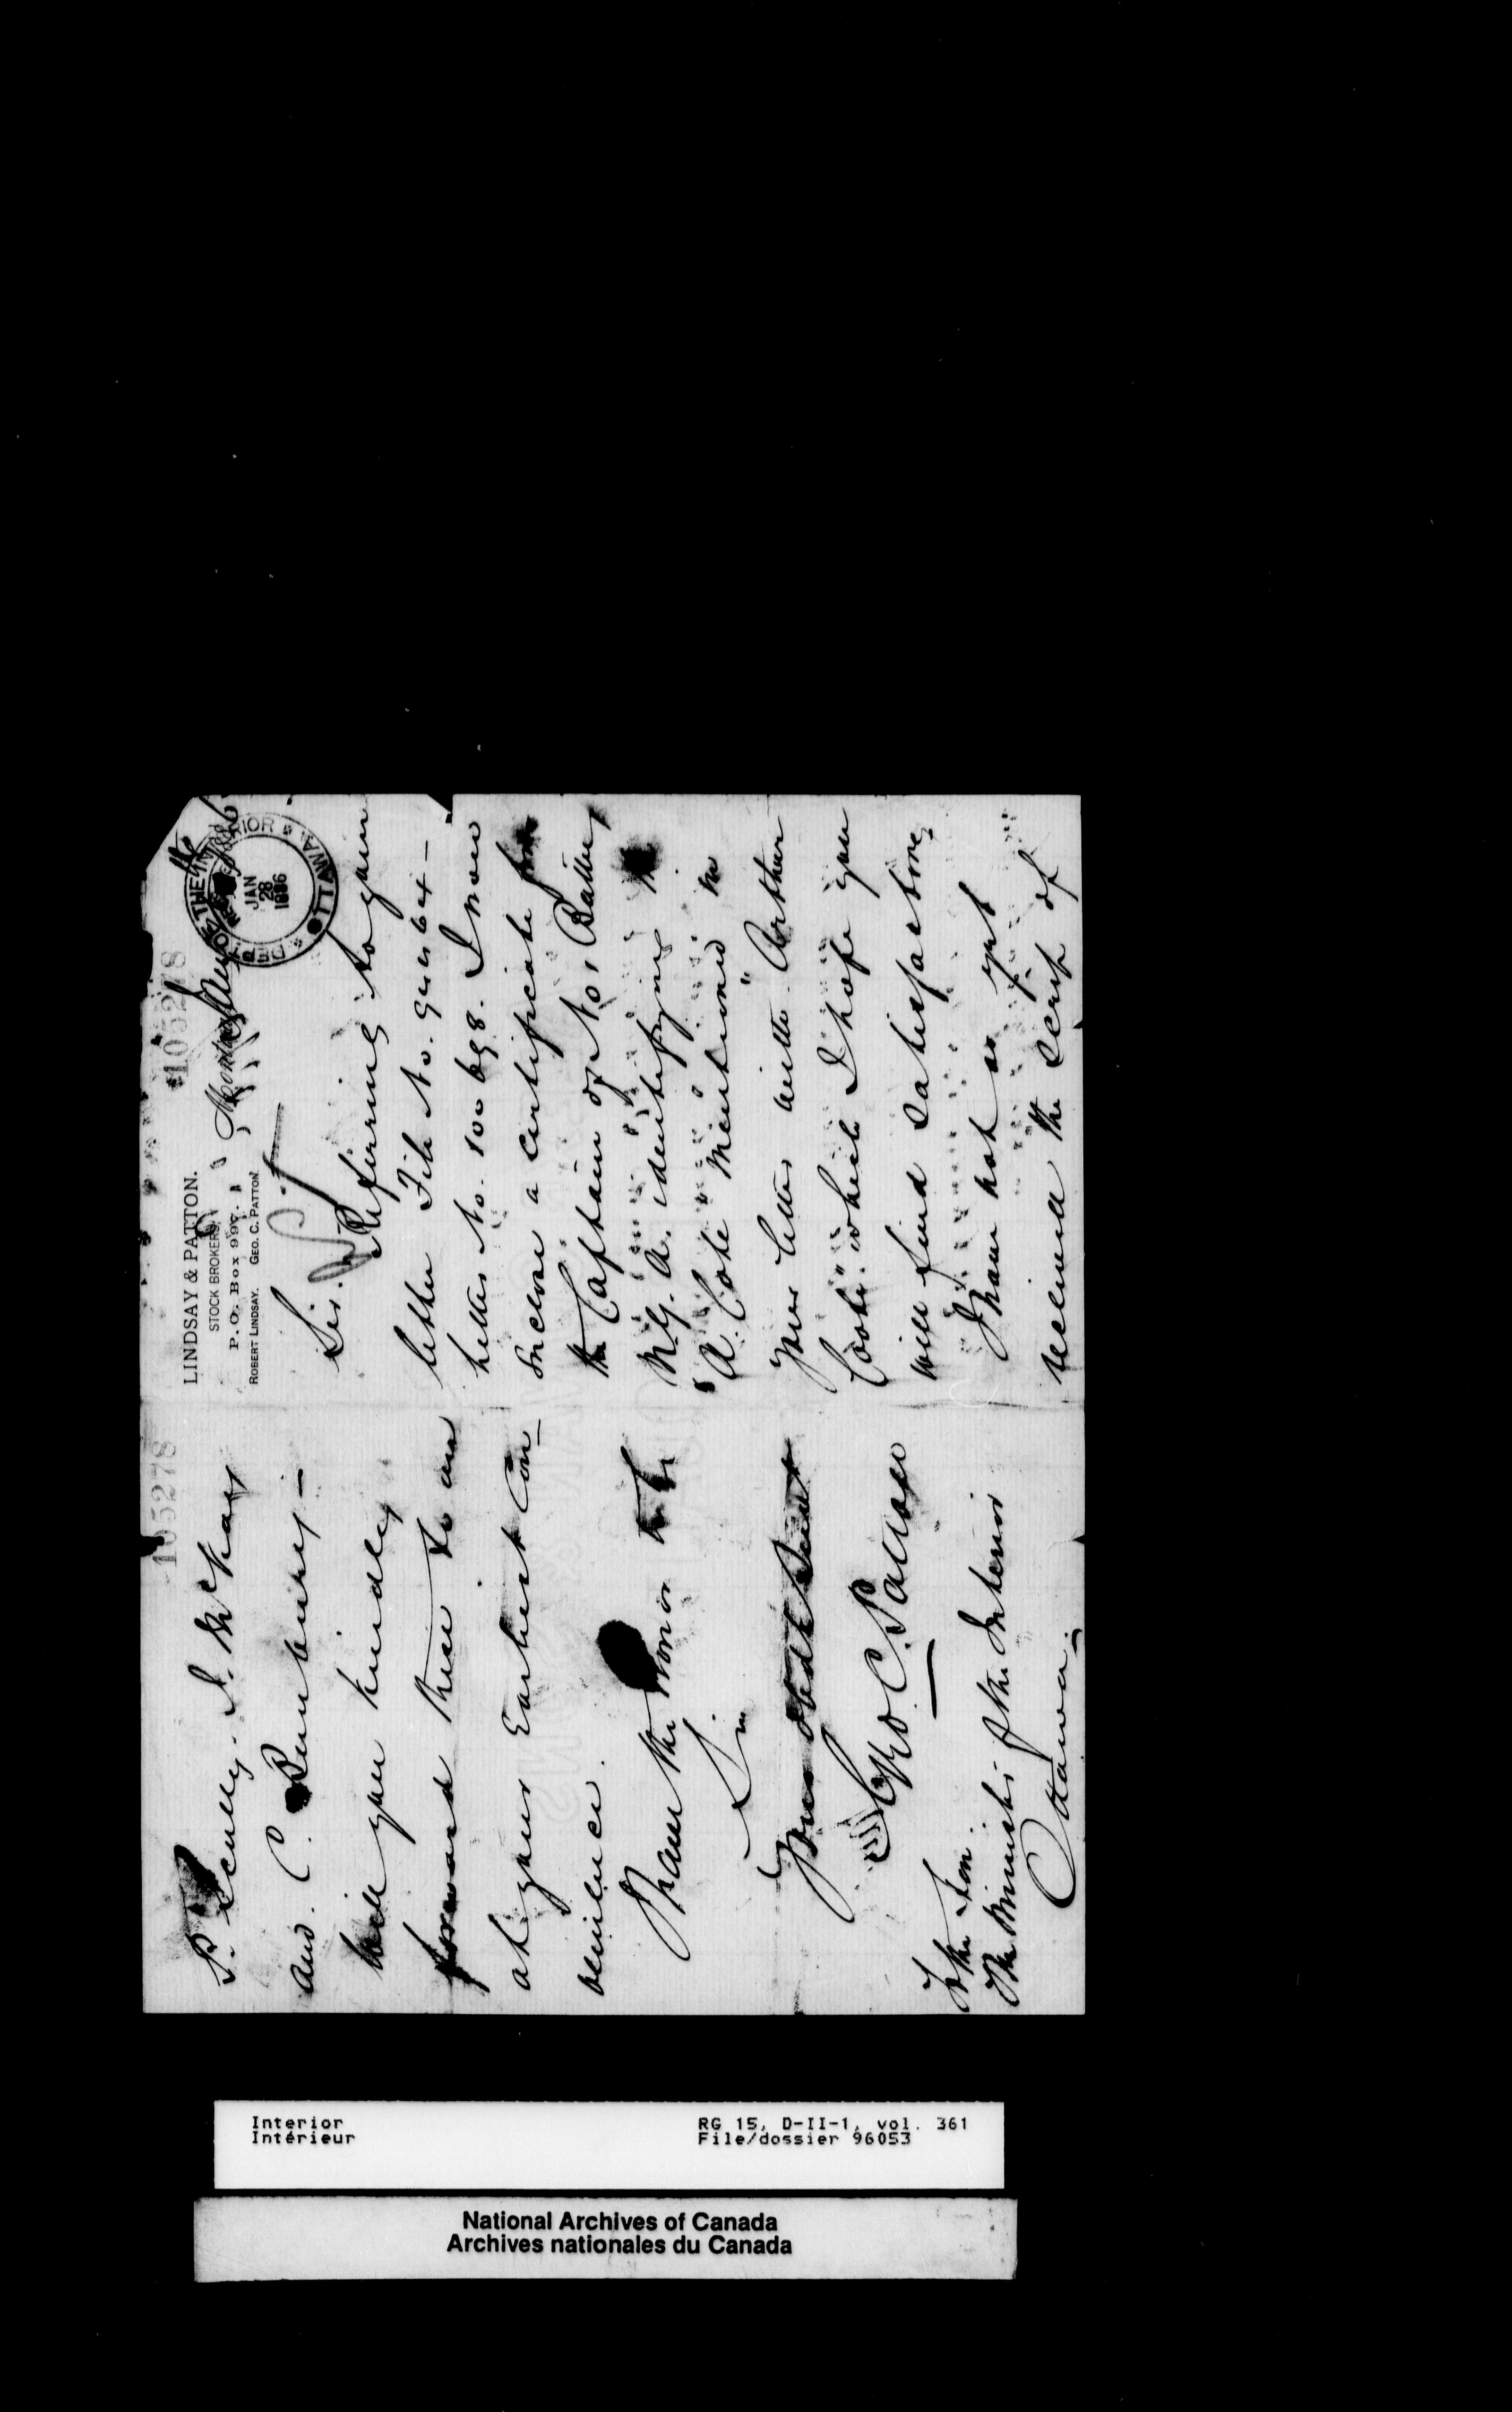 105278
LINDSAY & PATTON.
STOCK BROKERS,
P. O. Box 997.
ROBERT LINDSAY. GEO. C. PATTON
DEPT OF THE INTERIOR
JAN
28
1886
OTTAWA
Sir.
Referring to your
letter File No.
letter No. 100698. I now
Inclose a certificate from
the Captain of No 1 Battery
M.G.A. identifying the
"A. Cote" mentioned in
your letter with "Arthur
Coote" which I hope you
will find satisfactory,
I have not as yet
received the scrip of
105278
P. Scully. J. McKay
and C. Bunbury—
Will you kindly
forward these to me
at your Earliest Con-
venience.
I have the honor to be
Sir
Your obdt Servt
Geo. C. Patton
To the Hon.
The Minister of the Interior
Ottawa.
Interior
Intérieur
RG 15, D-II-1, vol. 361
File/dossier 96053
National Archives of Canada
Archives nationales du Canada